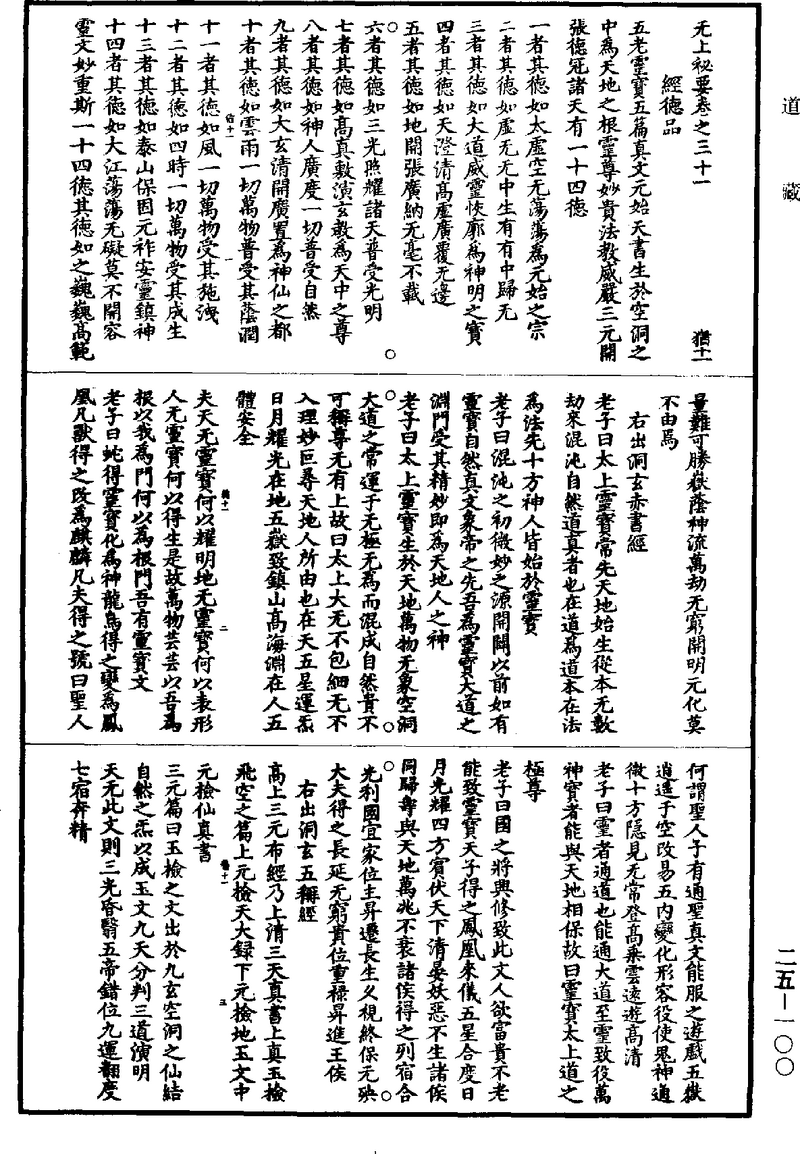 道藏
无上秘要卷之三十一　猶十一
經德品
五老靈寶五篇真文元始天書生於空洞之
中為天地之根靈尊妙貴法教威嚴三元開
張德冠諸天有一十四德
一者其德如太虛空无蕩蕩為元始之宗
二者其德如虛无无中生有有中歸无
三者其德如大道威靈恢廓為神明之寶
四者其德如天澄清高虛廣覆无邊
五者其德如地開張廣納无毫不載
六者其德如三光照耀諸天普受光明
七者其德如高真敷演玄教為天中之尊
八者其德如神人廣度一切普受自然
九者其德如大玄清開廣置為神仙之都
十者其德如雲雨一切萬物普受其蔭潤
十一者其德如風一切萬物受其施洩
十二者其德如四時一切萬物受其成生
十三者其德如泰山保固元祚安靈鎮神
十四者其德如大江蕩蕩无礙莫不開容
靈文妙重斯一十四德其德如之巍巍高範
量難可勝嶽蔭神流萬劫无窮開明元化莫
不由焉
右出洞玄赤書經
老子曰太上靈寶常先天地始生從本无數
劫來混沌自然道真者也在道為道本在法
為法先十方神人皆始於靈寶
老子曰混沌之初微妙之源開闢以前如有
靈寶自然真文象帝之先吾為靈寶大道之
淵門受其精妙即為天地人之神
老子曰太上靈寶生於天地萬物无象空洞
大道之常運于无極无為而混成自然貴不
可稱尊无有上故曰太上大无不包細无不
入理妙叵尋天地人所由也在天五星運炁
日月耀光在地五嶽致鎮山高海淵在人五
體安全
夫天无靈寶何以耀明地无靈寶何以表形
人无靈寶何以得生是故萬物芸芸以吾為
根以我為門何以為根門吾有靈寶文
老子曰蛇得靈寶化為神龍鳥得之變為鳳
凰凡獸得之改為麒麟凡夫得之號曰聖人
何謂聖人子有通聖真文能服之遊戲五嶽
逍遙于空改易五內變化形容役使鬼神通
微十方隱見无常登高乘雲遠遊高清
老子曰靈者通道也能通大道至靈致役萬
神寶者能與天地相保故曰靈寶太上道之
極尊
老子曰國之將興修致此文人欲富貴不老
能致靈寶天子得之鳳凰來儀五星合度日
月光耀四方賓伏天下清晏妖惡不生諸侯
同歸壽與天地萬兆不衰諸侯得之列宿合
光利國宜家位主昇遷長生久視終保元殃
大夫得之長延无窮貴位重祿昇進王侯
右出洞玄五稱經
高上三元布經乃上清三天真書上真玉檢
飛空之篇上元檢天大錄下元檢地玉文中
元檢仙真書
三元篇曰玉檢之文出於九玄空洞之仙結
自然之炁以成玉文九天分判三道演明
天元此文則三光昏翳五帝錯位九運翻度
七宿奔精
二五—一〇〇